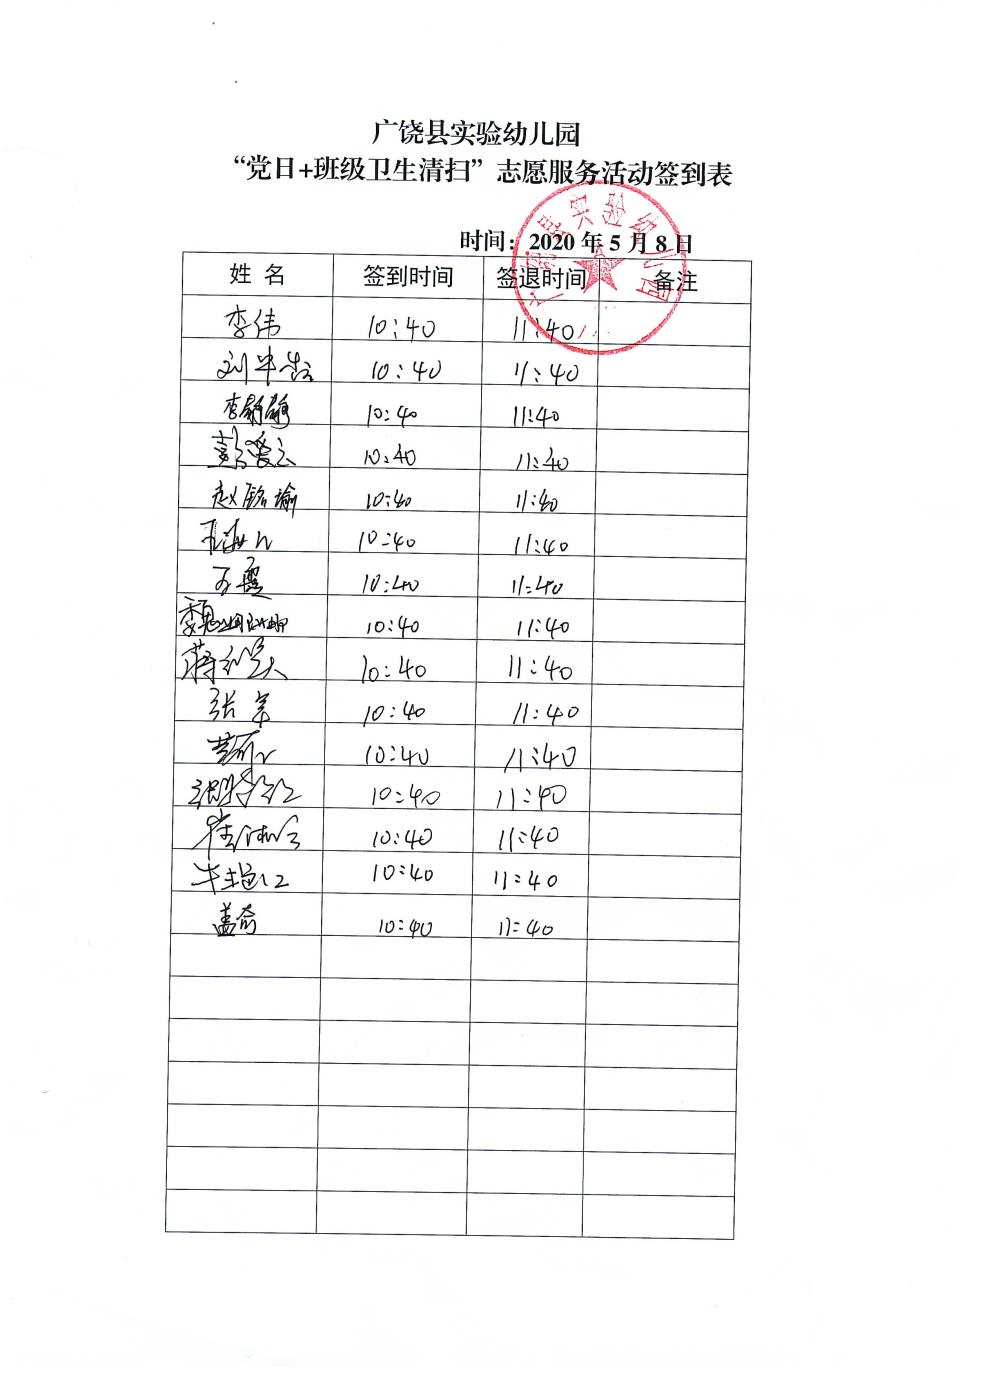 广饶县实验幼儿园
“党日+班级卫生清扫”志愿服务活动签到表
广饶县实验幼儿园
时间：2020年5月8日
姓名 签到时间 签退时间 备注
李伟 10:40 11:40
刘 10:40 11:40
李静静 10:40 11:40
彭爱云 10:40 11:40
赵铭瑜 10:40 11:40
王海 10:40 11:40
王霞 10:40 11:40
魏 10:40 11:40
蒋 10:40 11:40
张 10:40 11:40
10:40 11:40
10:40 11:40
崔 10:40 11:40
10:40 11:40
盖奇 10:40 11:40